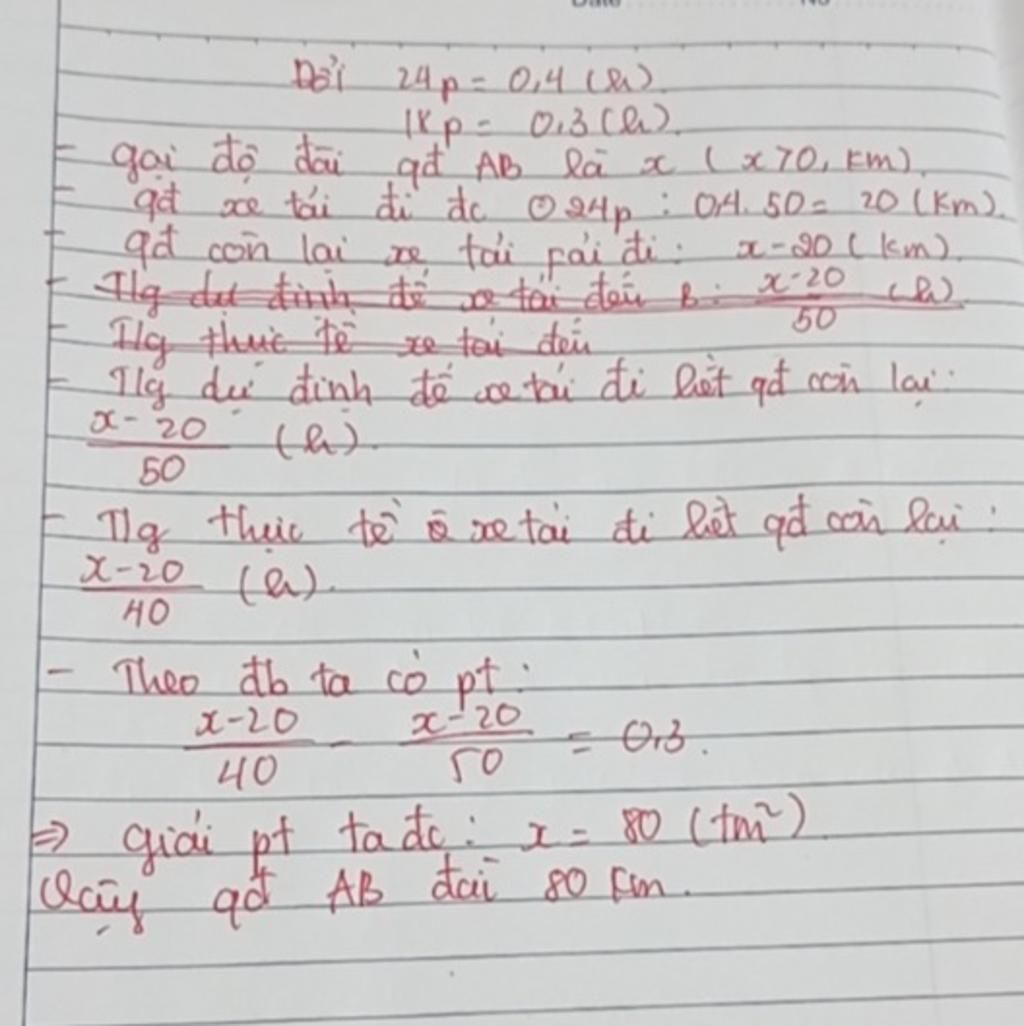 Đổi 24p = 0,4 (h)
18p = 0,3 (h).
- gọi độ dài qđ AB là x (x>0, km)
- qđ xe tải đi đc 24p : 0,4. 50 = 20 (km).
- qđ còn lại xe tải fải đi : x-20 (km)
- Tlg dự định để xe tải đến B : x-20/50 (h)
- Tlg thực tế xe tải đến
- Tlg dự định để xe tải đi hết qđ còn lại :
x-20/50 (h).
- Tlg thực tế xe tải đi hết qđ còn lại :
x-20/40 (h).
- Theo đb ta có pt :
x-20/40 - x-20/50 = 0,3.
=> giải pt ta đc : x = 80 (tm²)
Vậy qđ AB dài 80 km.